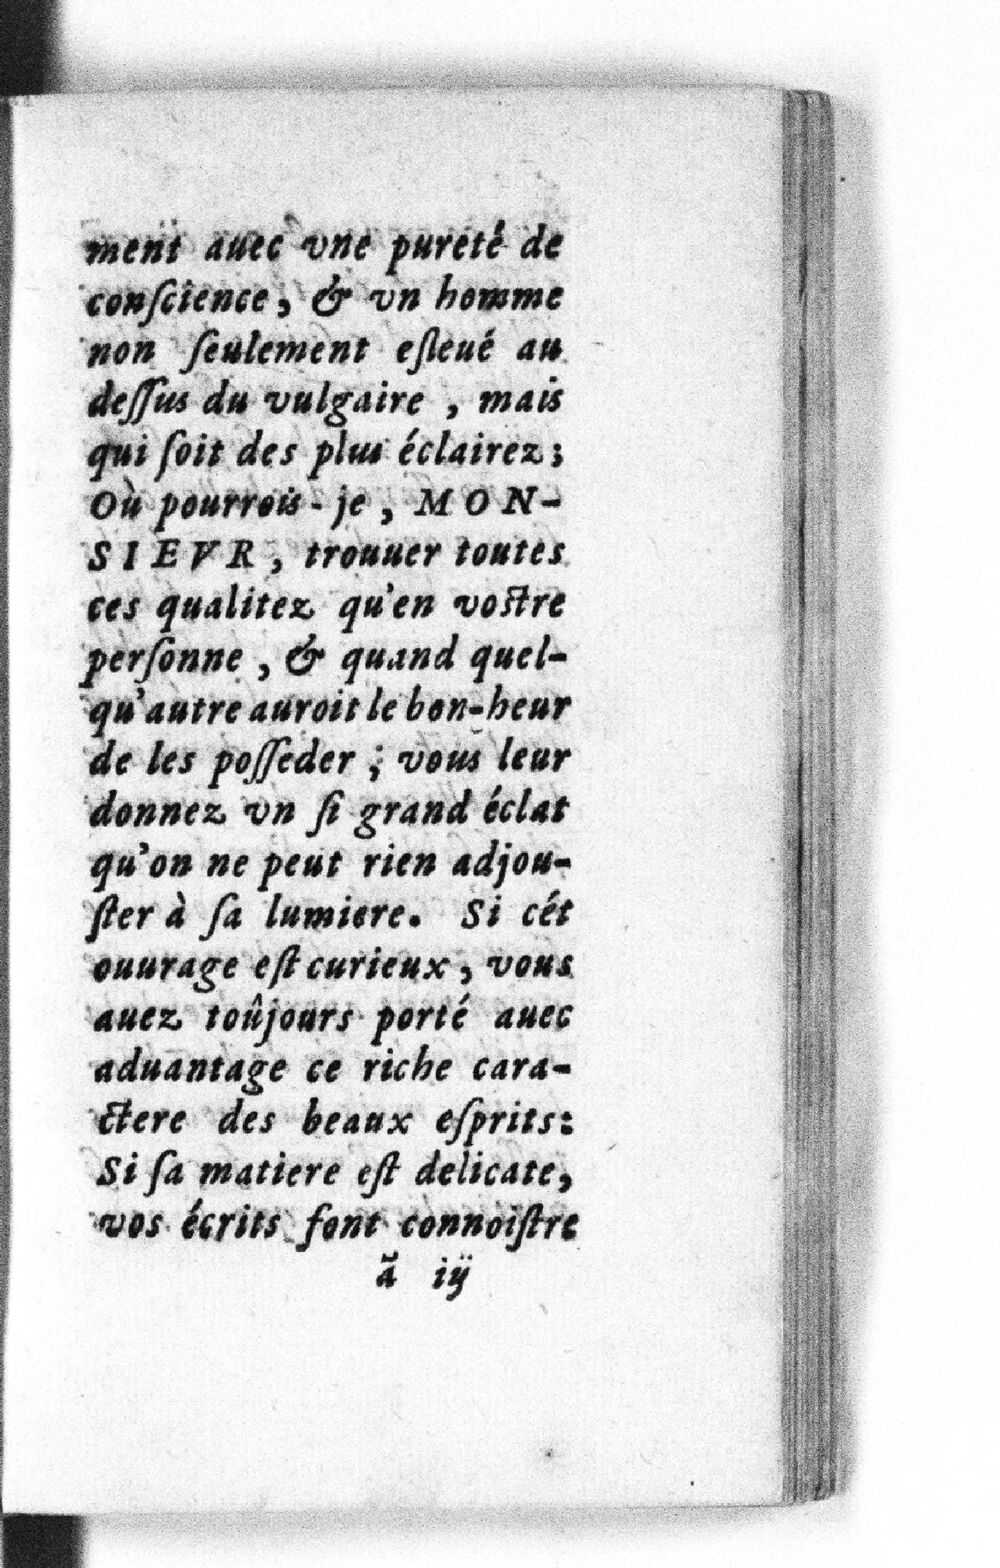 ment auec vne pureté de
conſcience, & vn homme
non ſeulement eſleué au
deſſus du vulgaire , mais
qui ſoit des plus éclairez;
Où pourrois-je, MON-
SIEVR, trouuer toutes
ces qualitez qu'en voſtre
perſonne , & quand quel-
qu'autre auroit le bon-heur
de les poſſeder ; vous leur
donnez vn ſi grand éclat
qu'on ne peut rien adjou-
ſter à ſa lumiere. Si cét
ouurage eſt curieux, vous
auez toûjours porté auec
aduantage ce riche cara-
ctere des beaux eſprits:
Si ſa matiere eſt delicate,
vos écrits font connoiſtre
ã iij